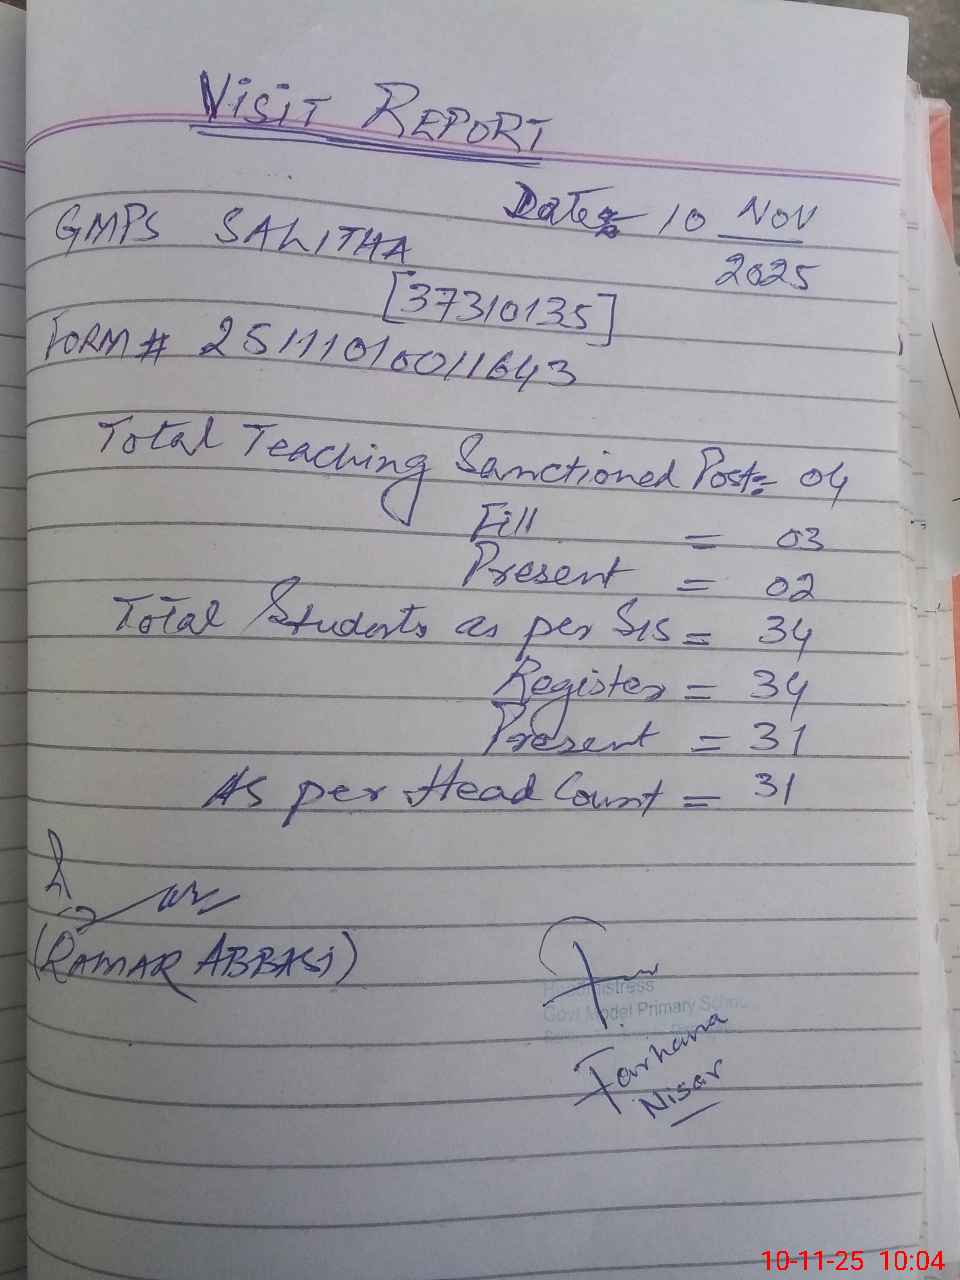 VISIT REPORT
Date:- 10 NOV
2025
GMPS SALITHA
[37310135]
FORM # 25111010011643
Total Teaching Sanctioned Post = 04
Fill = 03
Present = 02
Total Students as per SIS = 34
Register = 34
Present = 31
As per Head Count = 31
(QAMAR ABBASI)
Headmistress
Govt Model Primary School
Farhana
Nisar
10-11-25 10:04